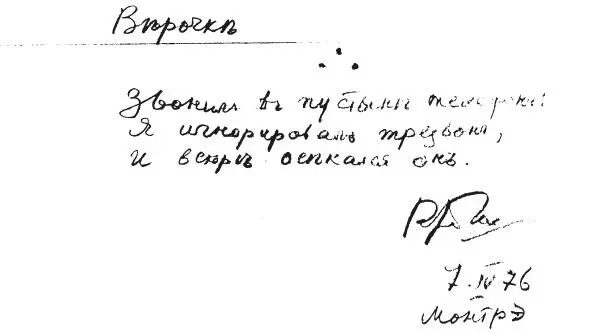 Вѣрочкѣ
Звонилъ въ пустынѣ телефонъ:
Я игнорировалъ трезвонъ,
И вскорѣ осѣкался онъ.
7.IV 76
Монтрэ